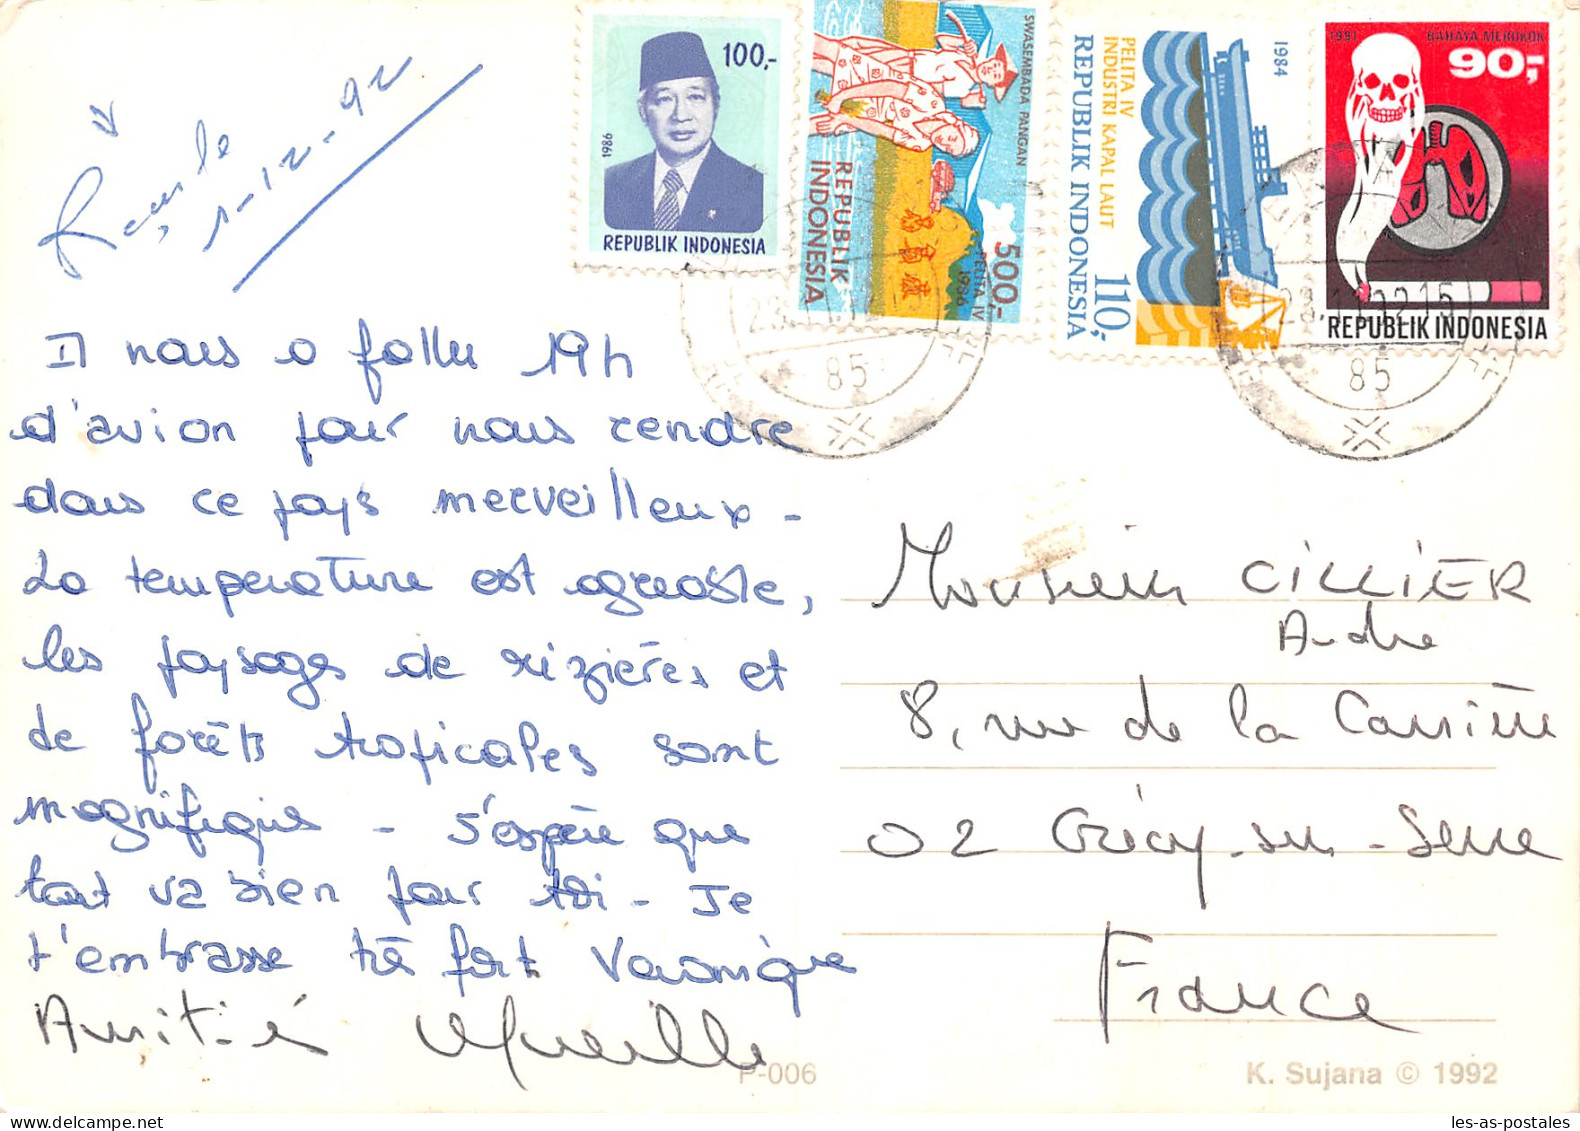 Reçu le
1-12-92
100,-
1986
REPUBLIK INDONESIA
SWASEMBADA PANGAN
REPUBLIK
INDONESIA
500,-
PELITA IV
1986
1984
PELITA IV
INDUSTRI KAPAL LAUT
REPUBLIK INDONESIA
110,-
1991 BAHAYA MEROKOK
90,-
REPUBLIK INDONESIA
85
85
Il nous a fallu 19h
d'avion pour nous rendre
dans ce pays merveilleux -
La temperature est agreable,
les paysages de rizières et
de forêts tropicales sont
magnifiques - J'espère que
tout va bien pour toi - Je
t'embrasse très fort Véronique
Amitiés
Monsieur CILLIER
Andre
8, rue de la Carrière
02 Crécy-sur-Serre
France
P-006
K. Sujana © 1992
les-as-postales